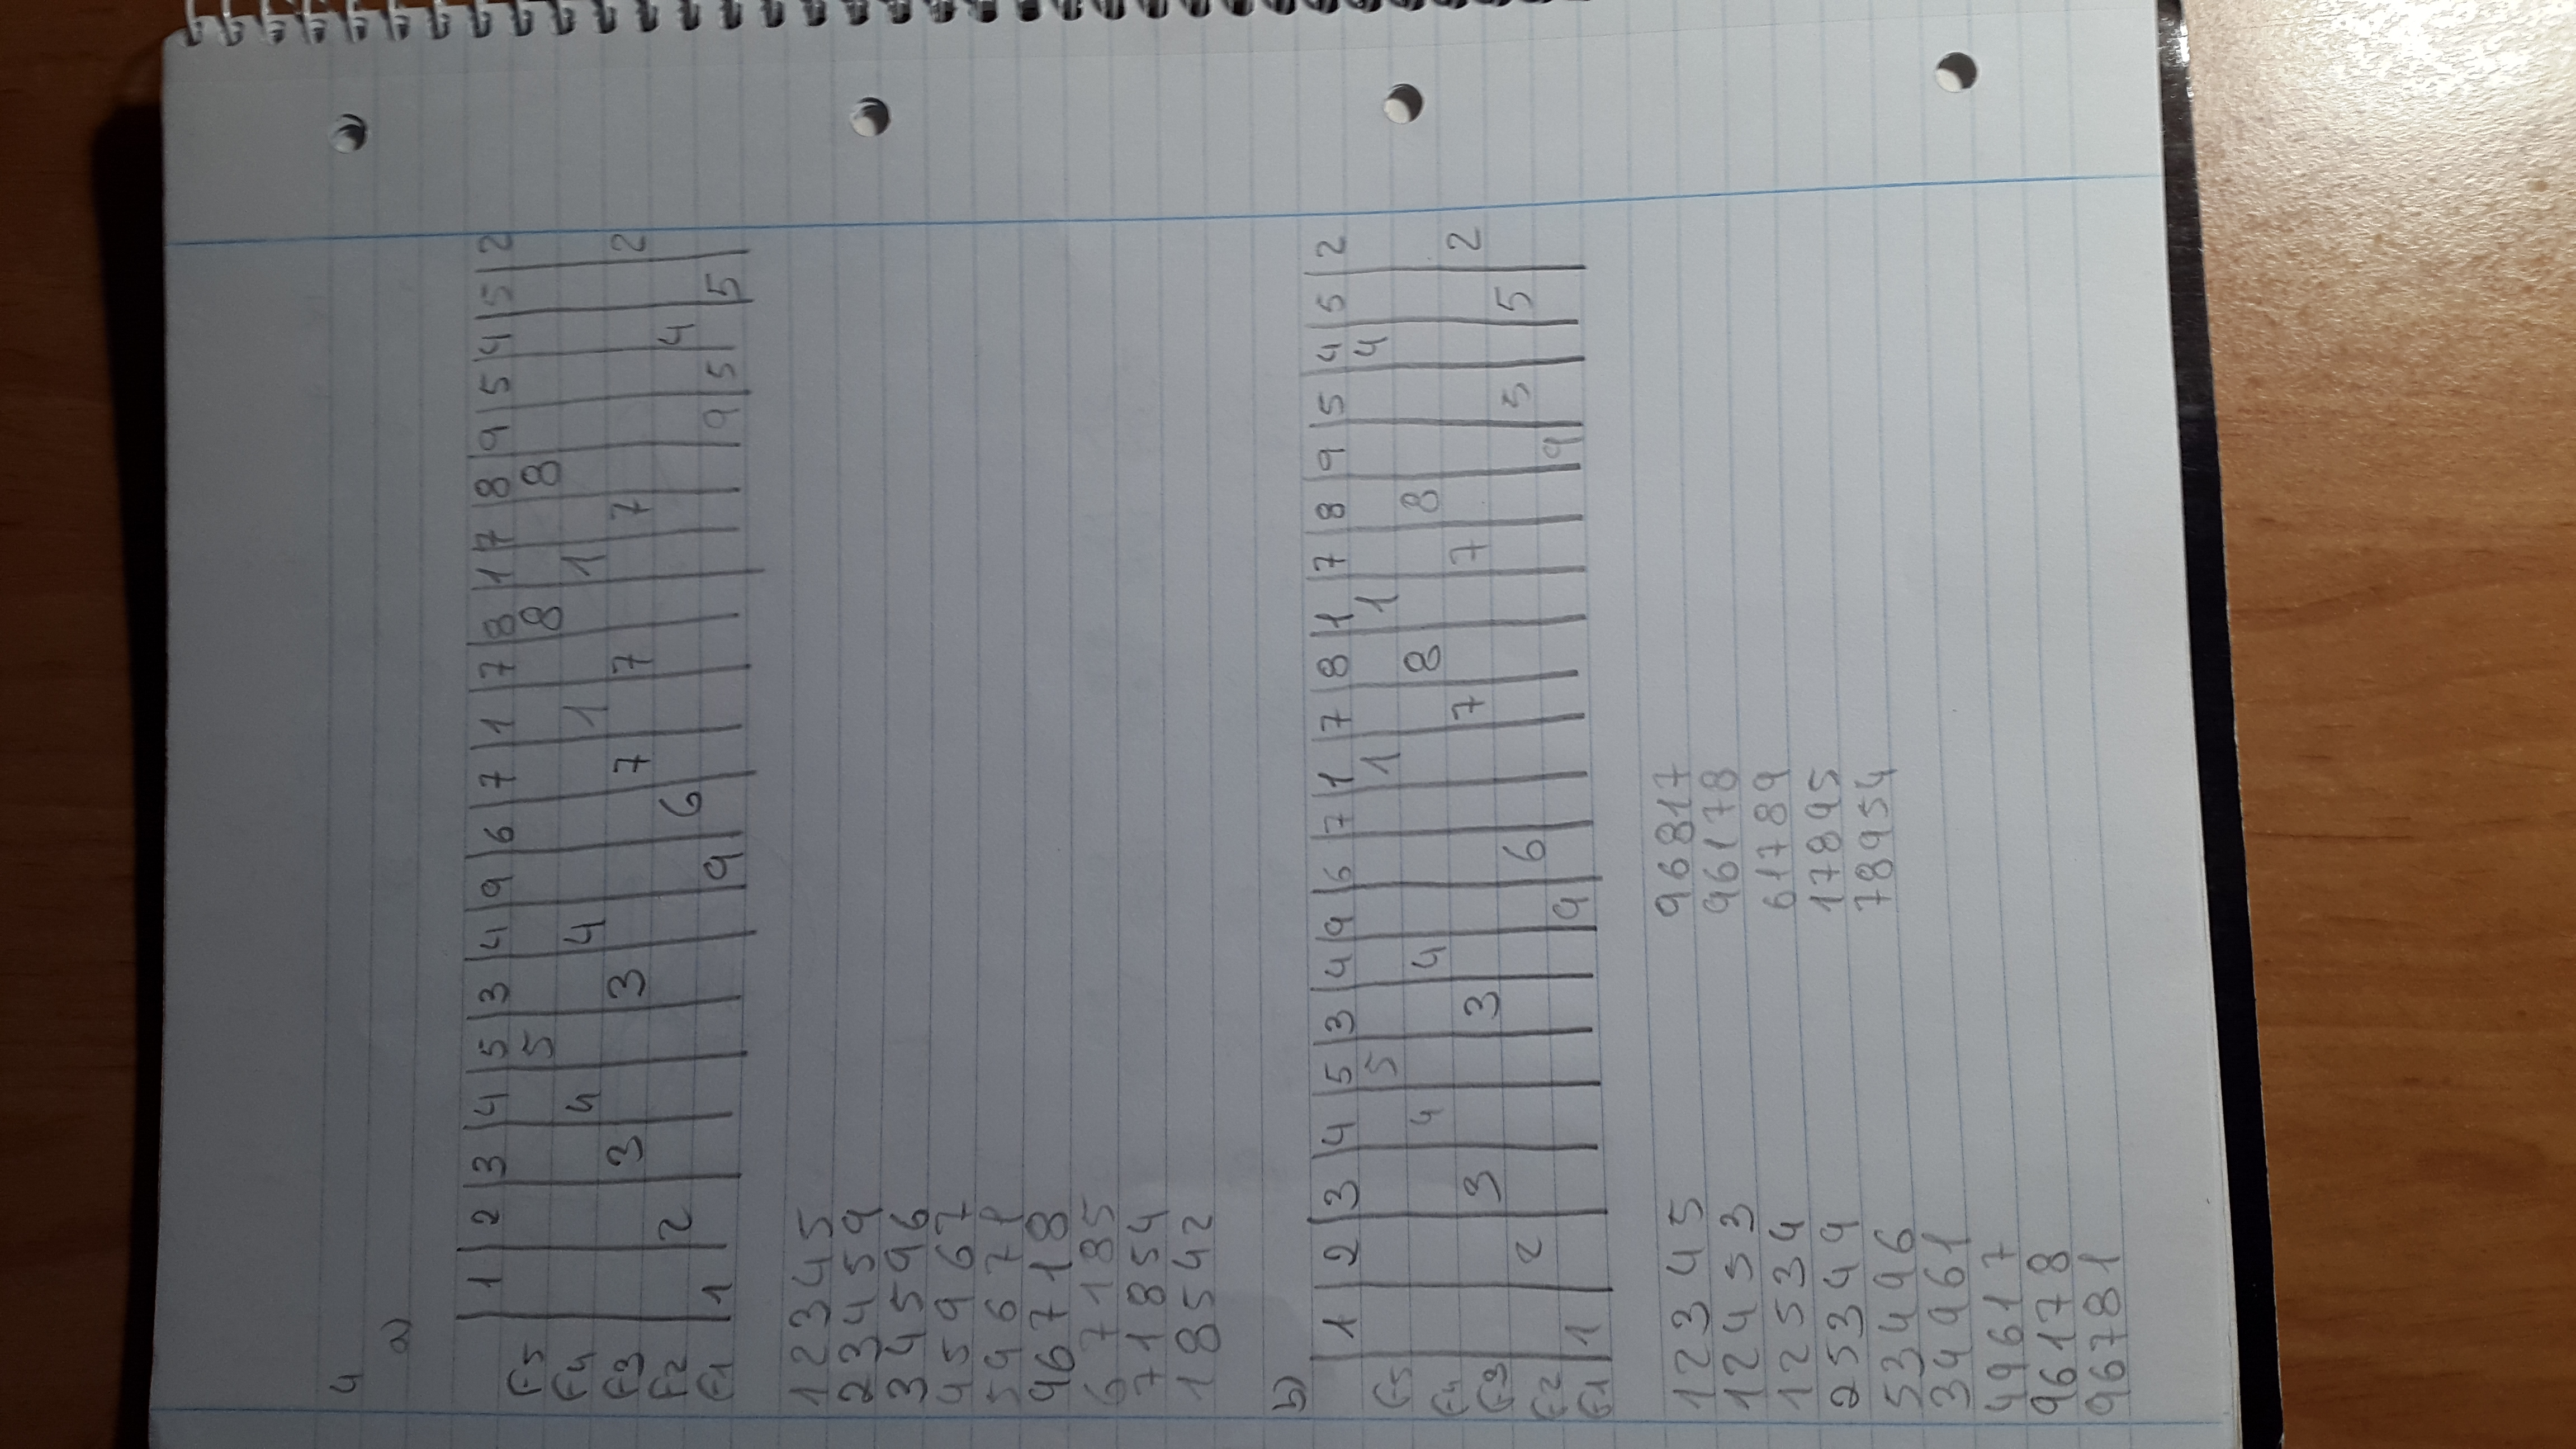 4
a)
1 2 3 4 5 3 4 9 6 7 1 7 8 1 7 8 9 5 4 5 2
F5 5 8 8
F4 4 4 1 1
F3 3 3 7 7 7 2
F2 2 6 4
F1 1 9 9 5 5
12345
23459
34596
45967
59671
96718
67185
71854
18542
b)
1 2 3 4 5 3 4 9 6 7 1 7 8 1 7 8 9 5 4 5 2
F5 5 1 1 4
F4 4 4 8 8
F3 3 3 7 7 2
F2 2 6 5 5
F1 1 9 9
12345
12453
12534
25349
53496
34961
49617
96178
96781
96817
96178
61789
17895
78954